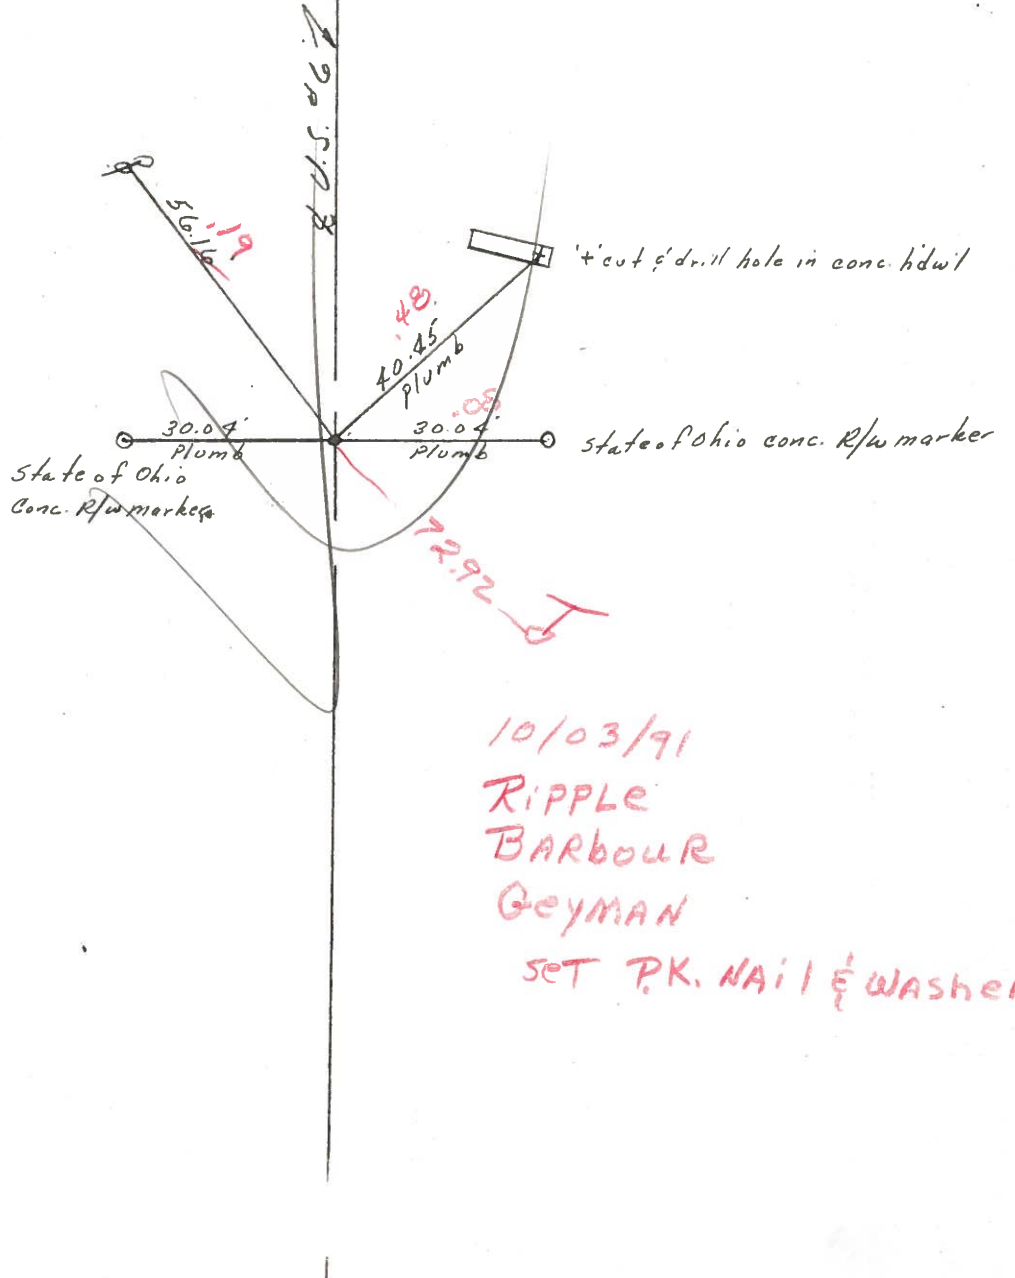 56.16
.19
'+' cut & drill hole in conc. hdw'l
.48
40.45
Plumb
.08
30.04'
Plumb
30.04'
Plumb
State of Ohio conc. R/w marker
State of Ohio
Conc. R/w marker
72.92
10/03/91
RiPPLe
BARbouR
GeyMAN
SeT P.K. NAil & WAsher